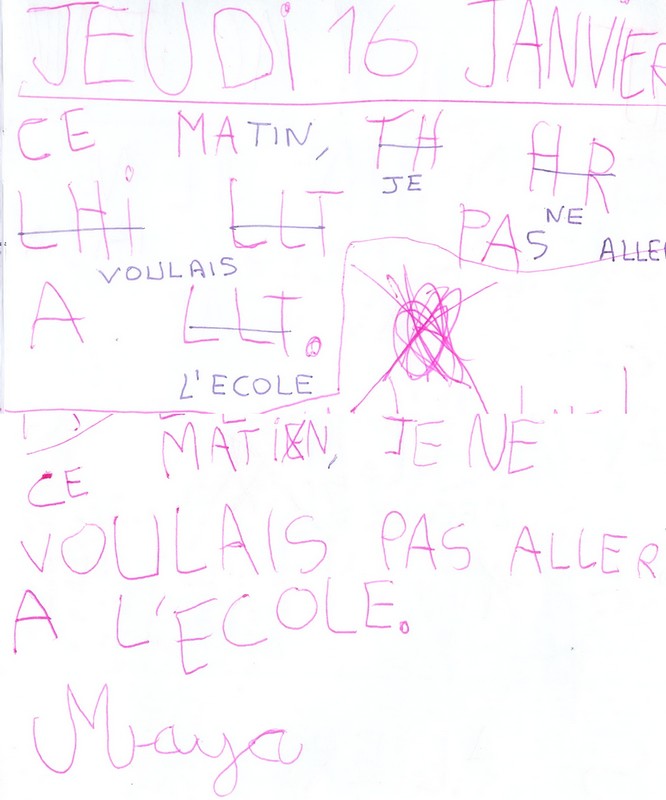 JEUDI 16 JANVIER
CE MATIN, TH HR
JE NE
LHI LLT PAS ALLER
VOULAIS
A LLT.
L'ECOLE
CE MATIEN, JE NE
VOULAIS PAS ALLER
A L'ECOLE.
Maya